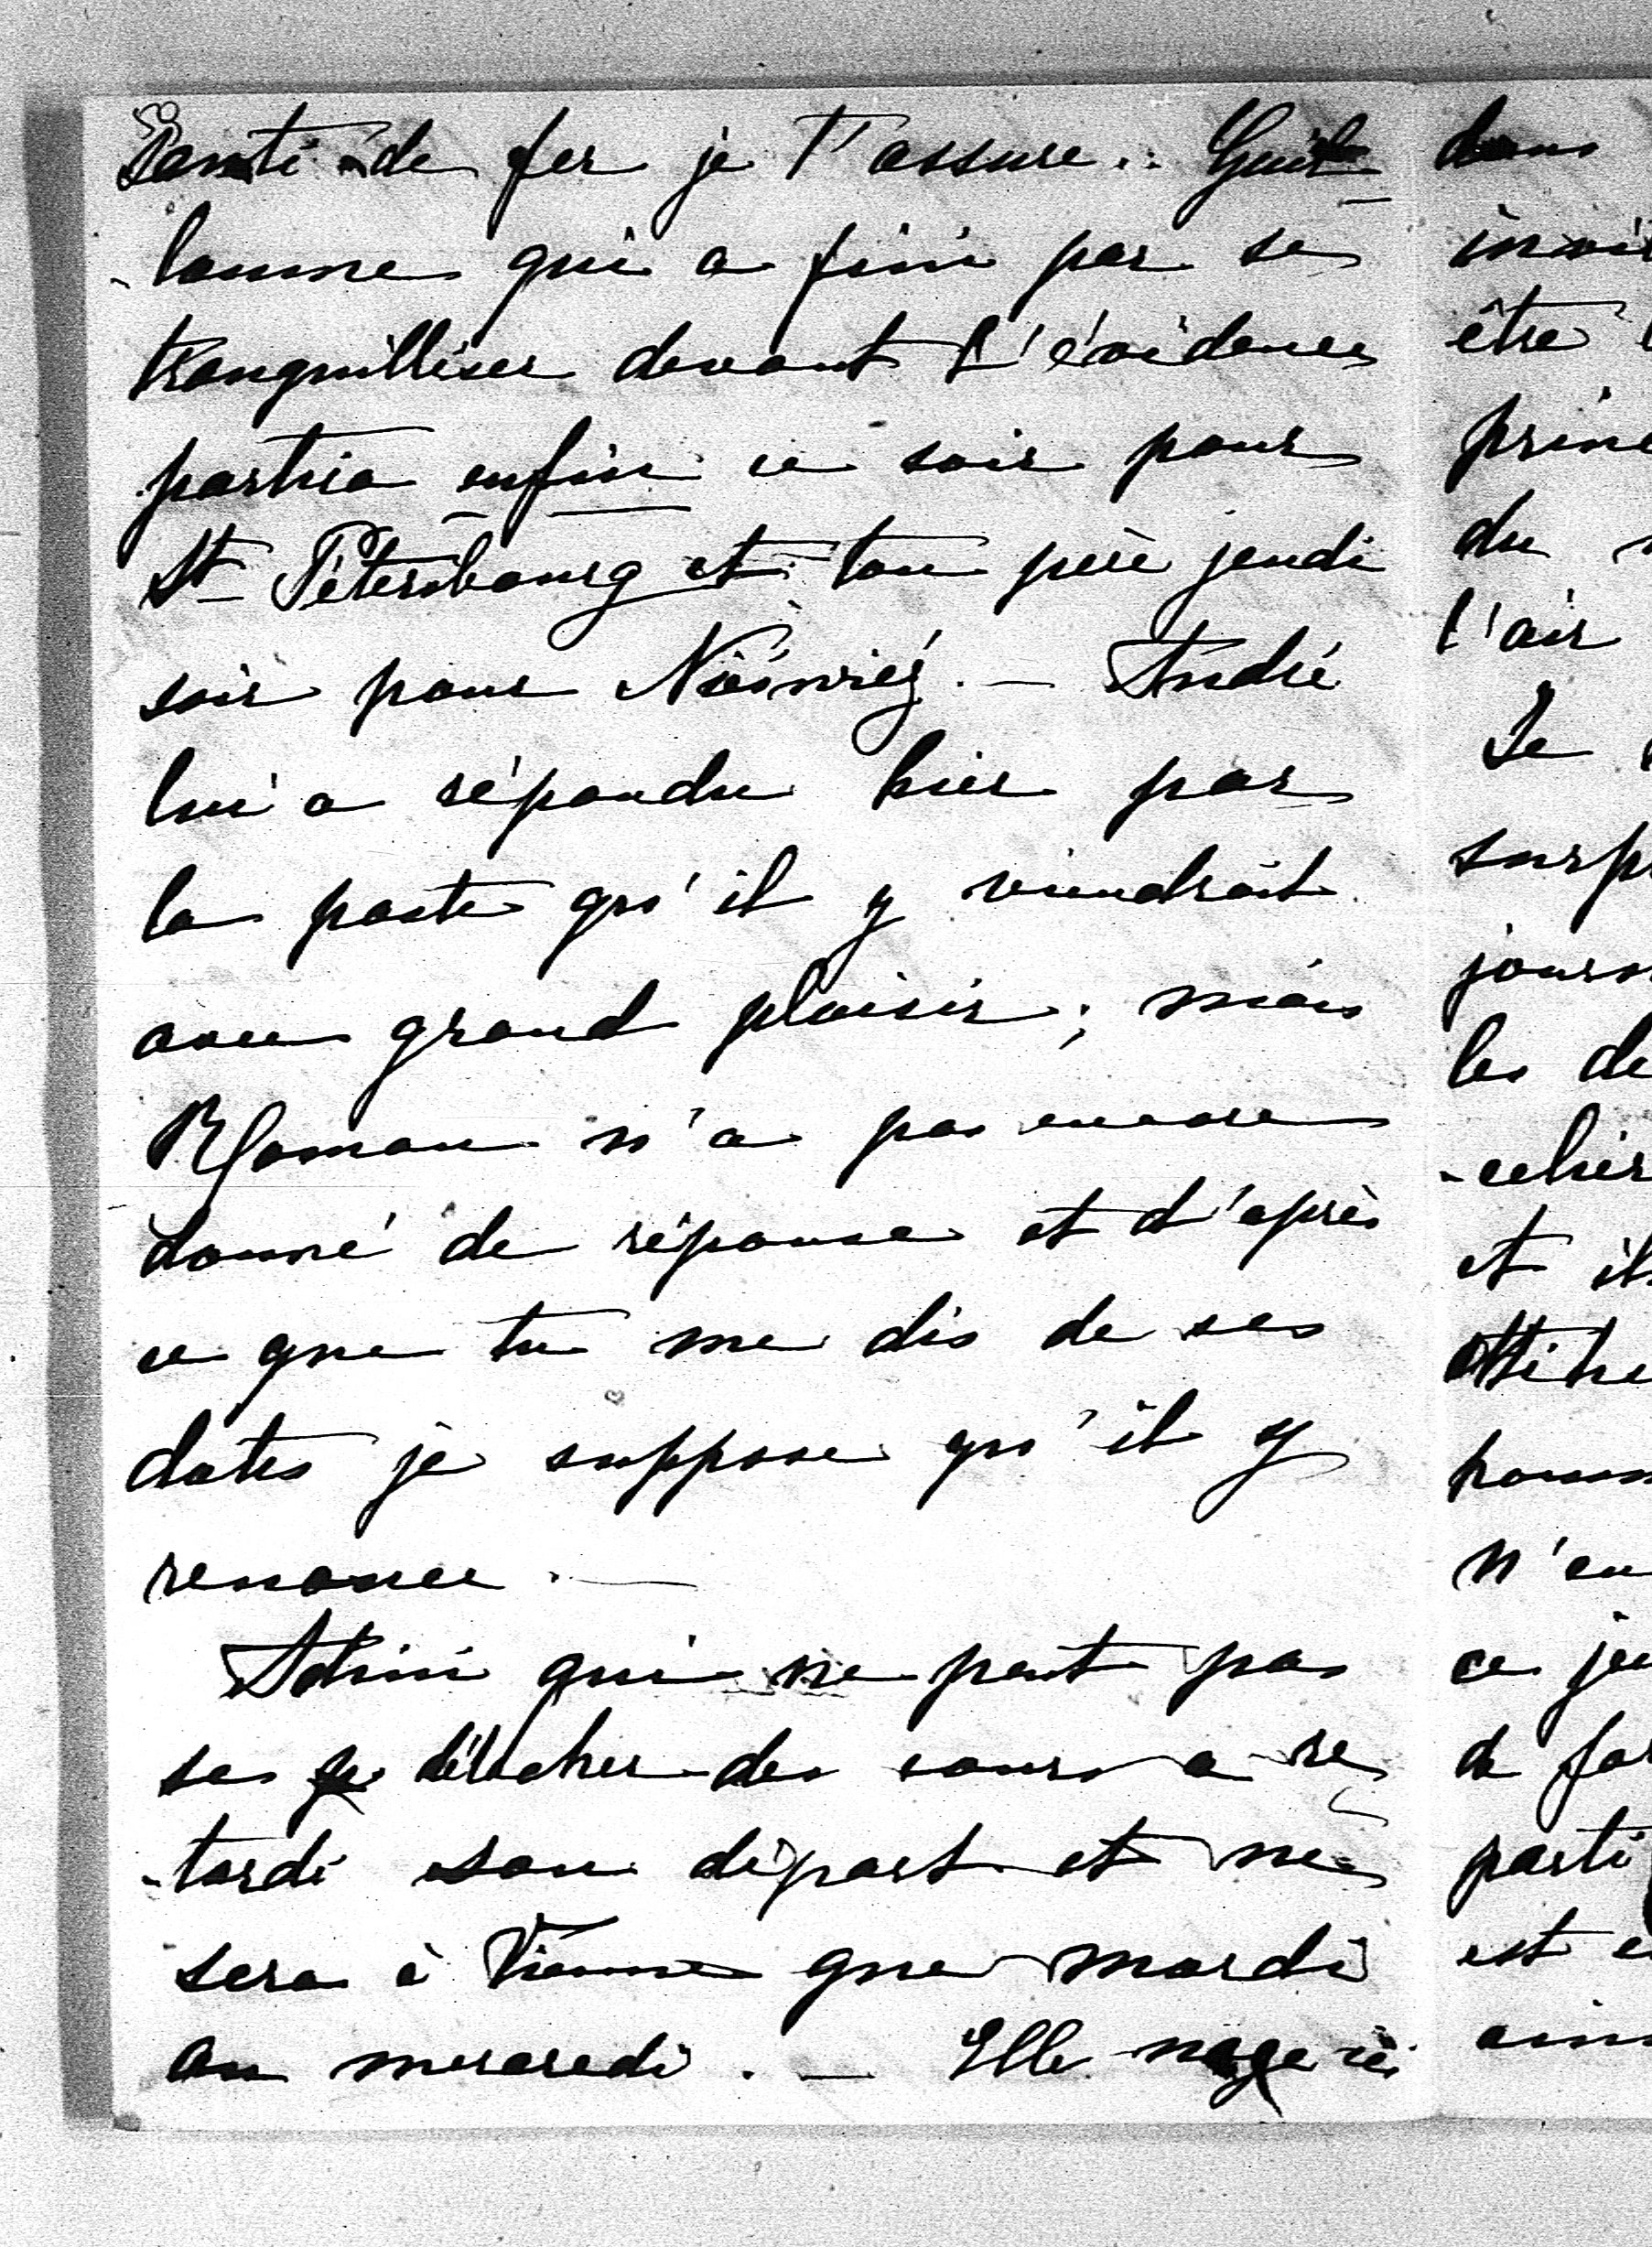 Santé de fer je t'assure. Guil-
-laume qui a fini par se
tranquilliser devant l'évidence
partira enfin ce soir pour
St Pétersbourg et ton père jeudi
soir pour . — André
lui a répondu hier par
la poste qu'il y viendrait
avec grand plaisir ; mais
Roman n'a pas encore
donné de réponse et d'après
ce que tu me dis de ses
dates je suppose qu'il y
renonce. —
qui ne peut pas
se détacher des cours a re
-tardé son départ et ne
sera à Vienne que mardi
ou mercredi. — Elle nage ici
dans
être
du
l'air
Je
les de
et il
n'en
ce
est